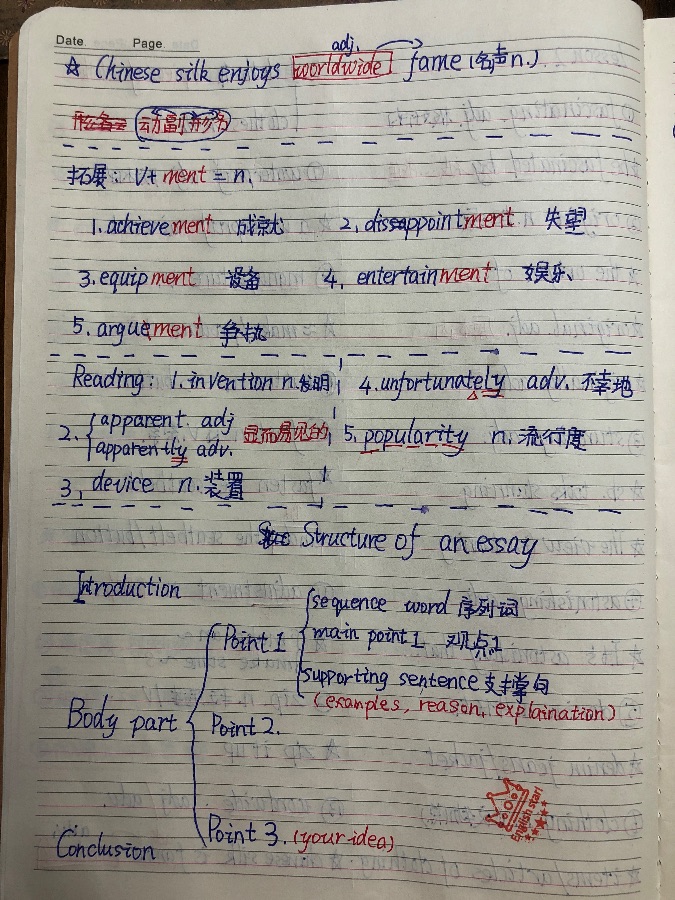 Date. Page.
adj.
☆ Chinese silk enjoys worldwide fame (名声n.)
形名 动副形名
拓展: V+ ment = n.
1. achievement 成就 2. dissappointment 失望
3. equipment 设备 4. entertainment 娱乐、
5. arguement 争执
Reading: 1. invention n.发明 4. unfortunately adv. 不幸地
2. apparent. adj 显而易见的 5. popularity n. 流行度
apparently adv.
3. device n. 装置
Structure of an essay
Introduction
sequence word 序列词
Point 1 main point 1 观点1
supporting sentence 支撑句
(examples, reason, explaination)
Body part Point 2.
Point 3. (your idea)
Conclusion
English star!